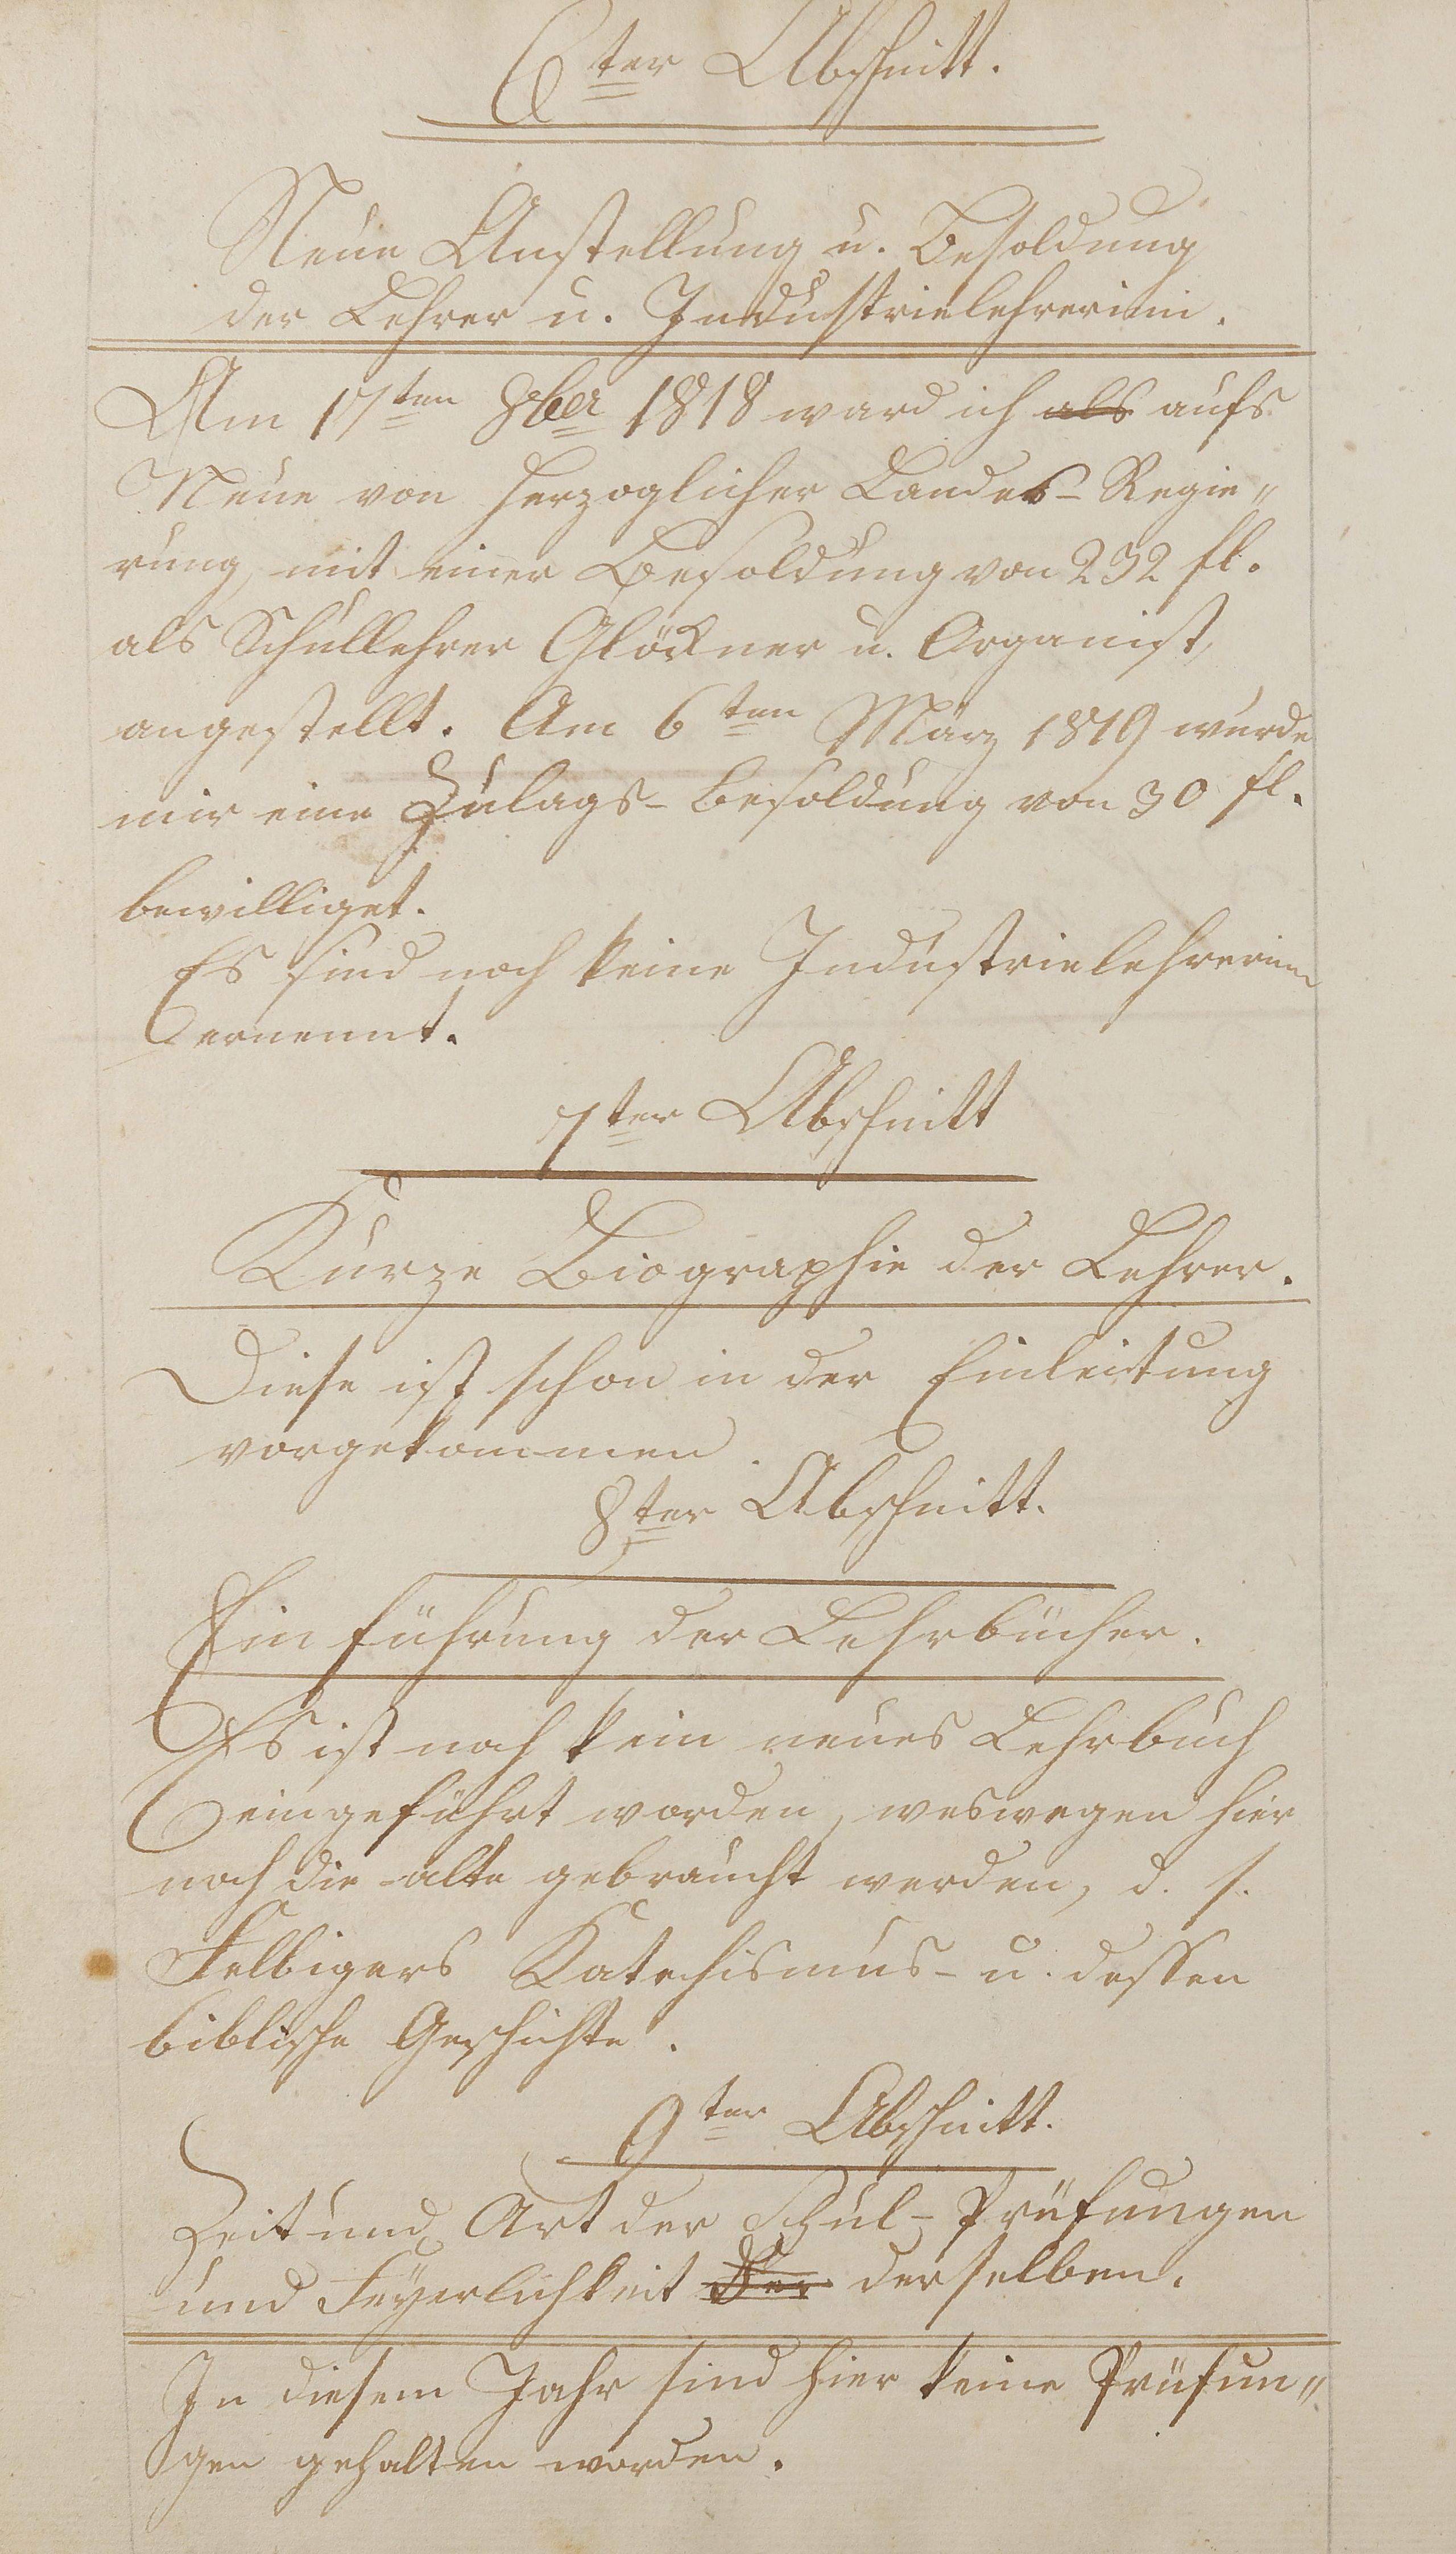 6ter Abschnitt.
Neue Anstellung u. Besoldung
der Lehrer u. Industrielehrerinn.
Am 17ten 8ber 1818 ward ich als aufs
Neue von herzoglicher Landes-Regie„
rung, mit einer Besoldung von 232 fl.
als Schullehrer Glöckner u. Organist,
angestellt. Am 6ten März 1819 wurde
mir eine Zulags-Besoldung von 30 fl.
bewilliget.
Es sind noch keine Industrielehrerinn
ernennt.
7ter Abschnitt
Kurze Biographie der Lehrer.
Diese ist schon in der Einleitung
vorgekommen.
8ter Abschnitt.
Einführung der Lehrbücher.
Es ist noch kein neues Lehrbuch
eingeführt worden, weswegen hier
noch die alte gebraucht werden, d. s.
Felbigers Katechismus- u. dessen
biblische Geschichte.
9ter Abschnitt.
Zeit und Art der Schul-Prüfungen
und Feyerlichkeit der derselben.
In diesem Jahr sind hier keine Prüfun„
gen gehalten worden.